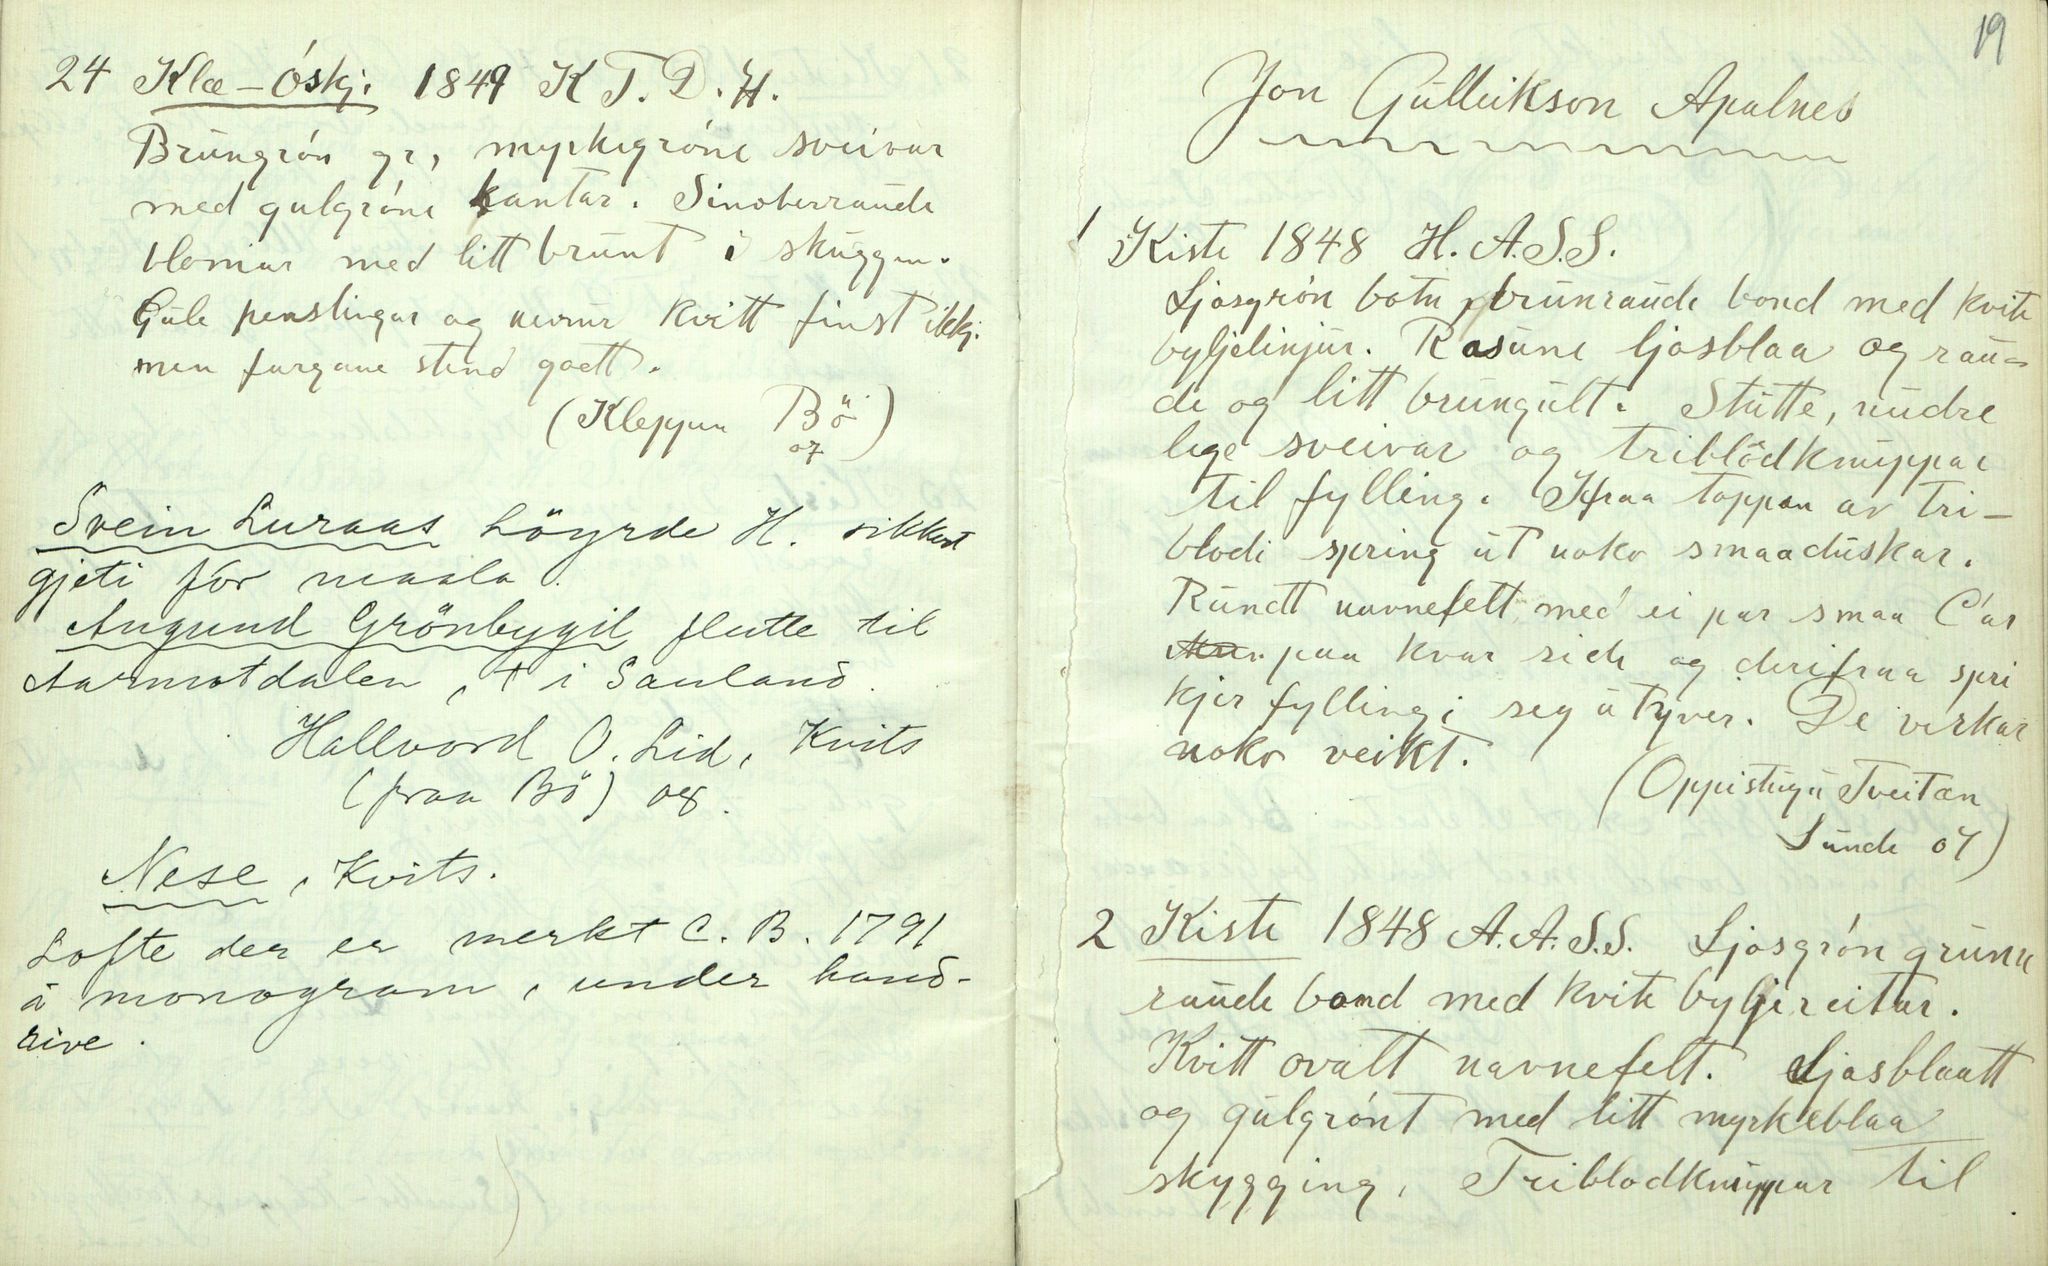 24 Klæ-óskj. 1849 K T. D. H.
Brungrón gr, myrkegróne sveivar
med gulgróne kantar. Sinoberraude
blomar med litt brunt i skuggen.
Gule penslingar og nevur kvitt finst ikkj.
men fargane stend godt.
(Kleppen Bö
07)
Svein Luraas löyrde H. sikkert
gjeti for maala.
Augund Grönbygil flutte til
Aarmotdalen, + i Sauland.
Hallvord O. Lid, Kvits
(fraa Bö) 08.
Nese, Kvits.
Lofte der er merkt C. B. 1791
å monogram, under hand-
rive.
19
Jon Gullikson Apalnes
1 Kiste 1848 H. A. S. S.
Ljosgrón botn, brunraude bond med kvite
byljelinjur. Rosune ljosblaa og rau-
de og litt brungult. Stutte, nudre
lege sveivar og triblódknuppar
til fylling. Ifraa toppen av tri-
blodi spring ut noko smaaduskar.
Rundt navnefelt med ei par smaa C'ar
paa kvar side og derifraa spri
kjer fylling i seg utyver. De verkar
noko veikt.
(Oppistugu Tveitan
Sunde 07)
2 Kiste 1848 A. A. S. S. Ljosgrón grunn
raude bond med kvite byljereitar.
Kvitt ovalt navnefelt. Ljosblaatt
og gulgrónt med litt myrkeblaa
skygging. Triblodknuppar til